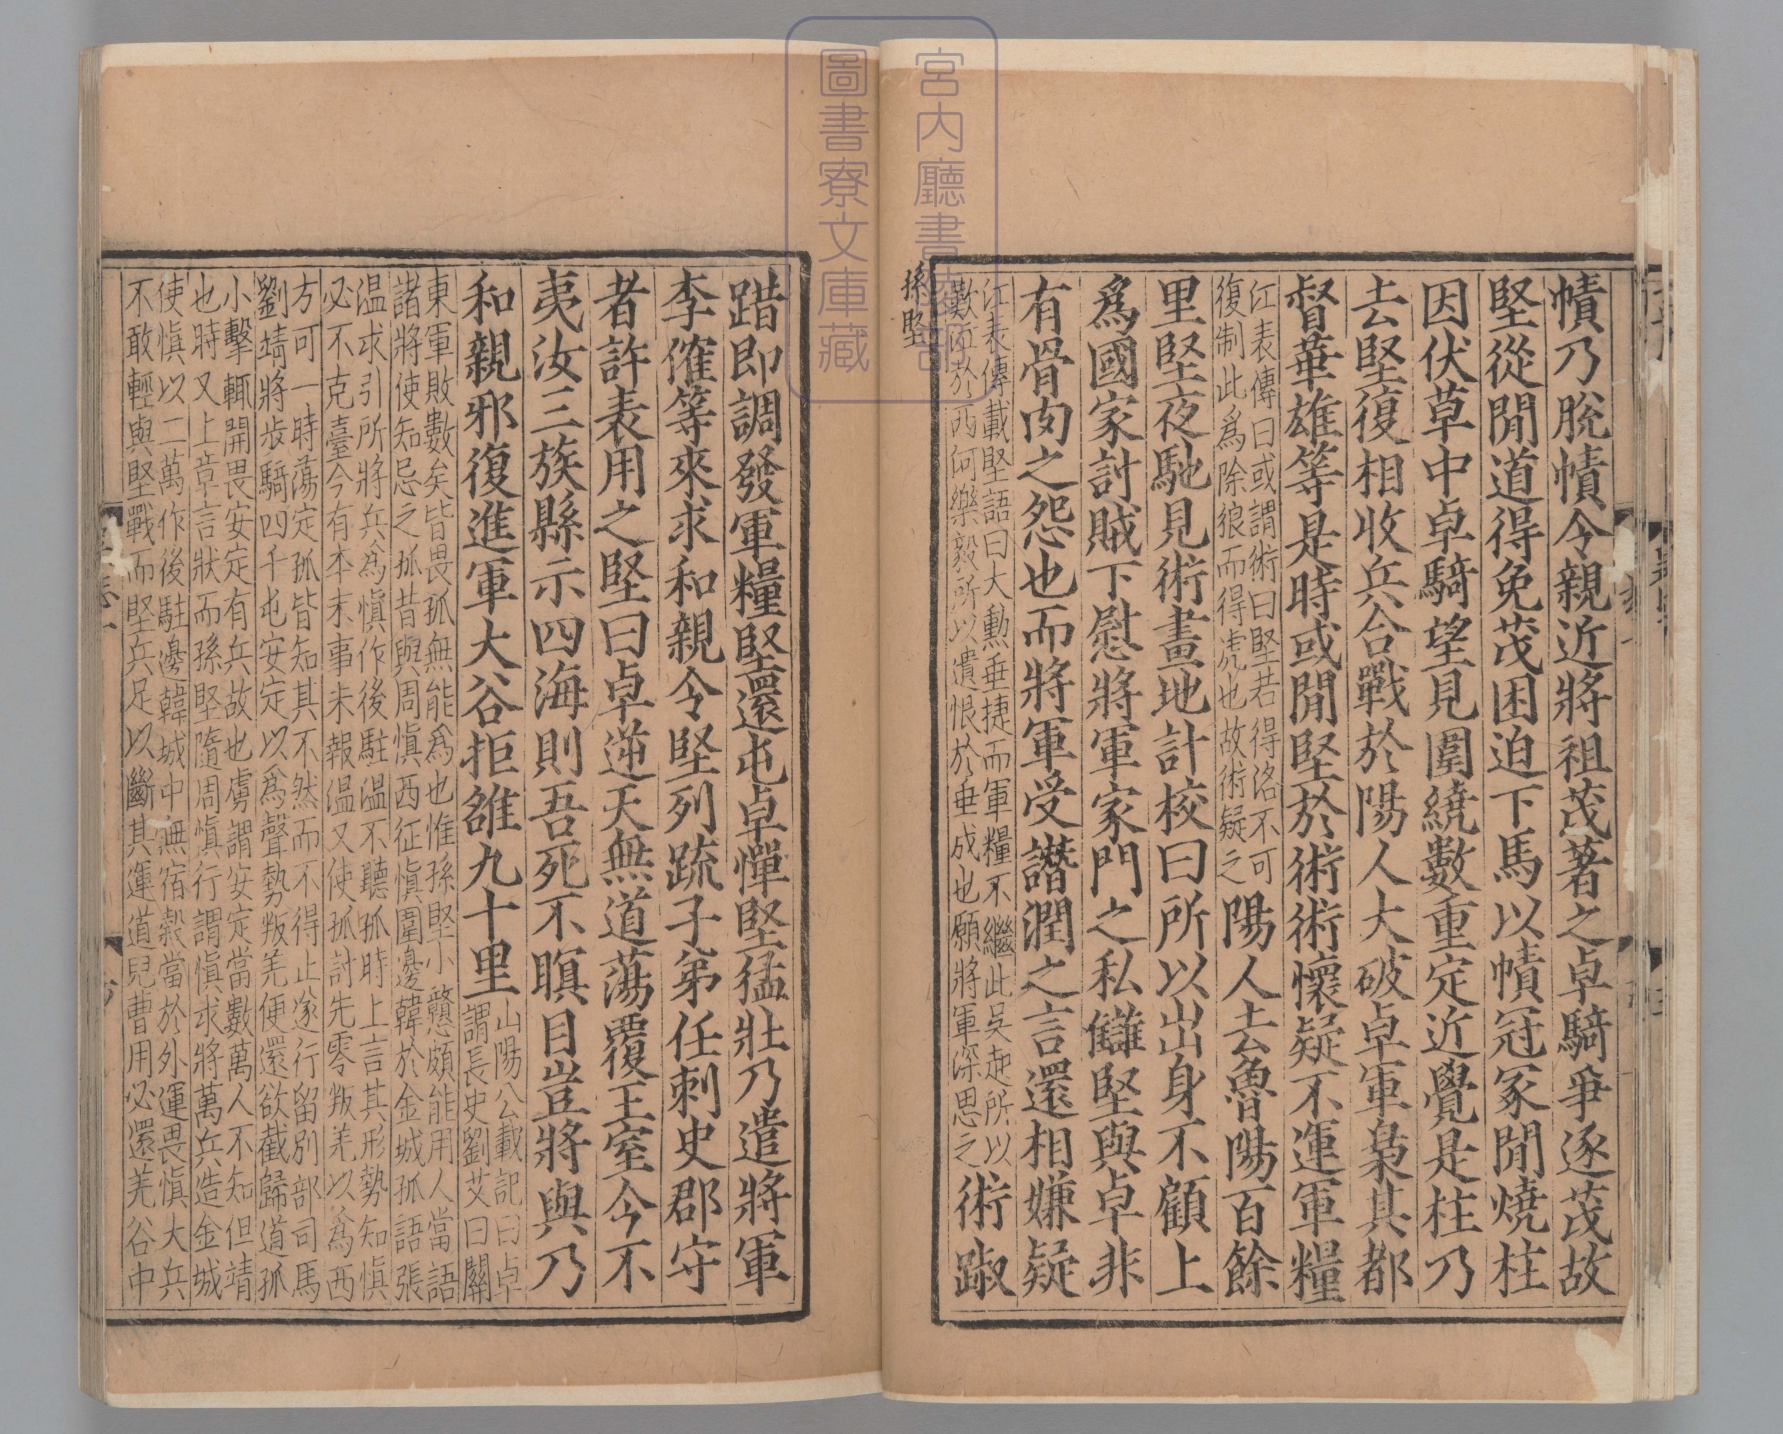 幘乃脫幘令親近將祖茂著之卓騎爭逐茂故
堅從閒道得免茂困迫下馬以幘冠冢閒燒柱
因伏草中卓騎望見圍繞數重定近覺是柱乃
去堅復相收兵合戰於陽人大破卓軍梟其都
督華雄等是時或閒堅於術術懷疑不運軍糧
江表傳曰或謂術曰堅若得洛不可
復制此爲除狼而得虎也故術疑之
陽人去魯陽百餘
里堅夜馳見術畫地計校曰所以出身不顧上
爲國家討賊下慰將軍家門之私讎堅與卓非
有骨肉之怨也而將軍受譖潤之言還相嫌疑
江表傳載堅語曰大勳垂捷而軍糧不繼此吳起所以
歎泣於西河樂毅所以遺恨於垂成也願將軍深思之
術踧
孫堅
踖即調發軍糧堅還屯卓憚堅猛壯乃遣將軍
李傕等來求和親令堅列疏子弟任刺史郡守
者許表用之堅曰卓逆天無道蕩覆王室今不
夷汝三族縣示四海則吾死不瞑目豈將與乃
和親邪復進軍大谷拒雒九十里
山陽公載記曰卓
謂長史劉艾曰關
東軍敗數矣皆畏孤無能爲也惟孫堅小戇頗能用人當語
諸將使知忌之孤昔與周愼西征愼圍邊韓於金城孤語張
温求引所將兵爲愼作後駐温不聽孤時上言其形勢知愼
必不克臺今有本末事未報温又使孤討先零叛羌以爲西
方可一時蕩定孤皆知其不然而不得止遂行留別部司馬
劉靖將步騎四千屯安定以爲聲勢叛羌便還欲截歸道孤
小擊輒開畏安定有兵故也虜謂安定當數萬人不知但靖
也時又上章言狀而孫堅隨周愼行謂愼求將萬兵造金城
使愼以二萬作後駐邊韓城中無宿穀當於外運畏愼大兵
不敢輕與堅戰而堅兵足以斷其運道兒曹用必還羌谷中
宮内廳書陵部
圖書寮文庫藏